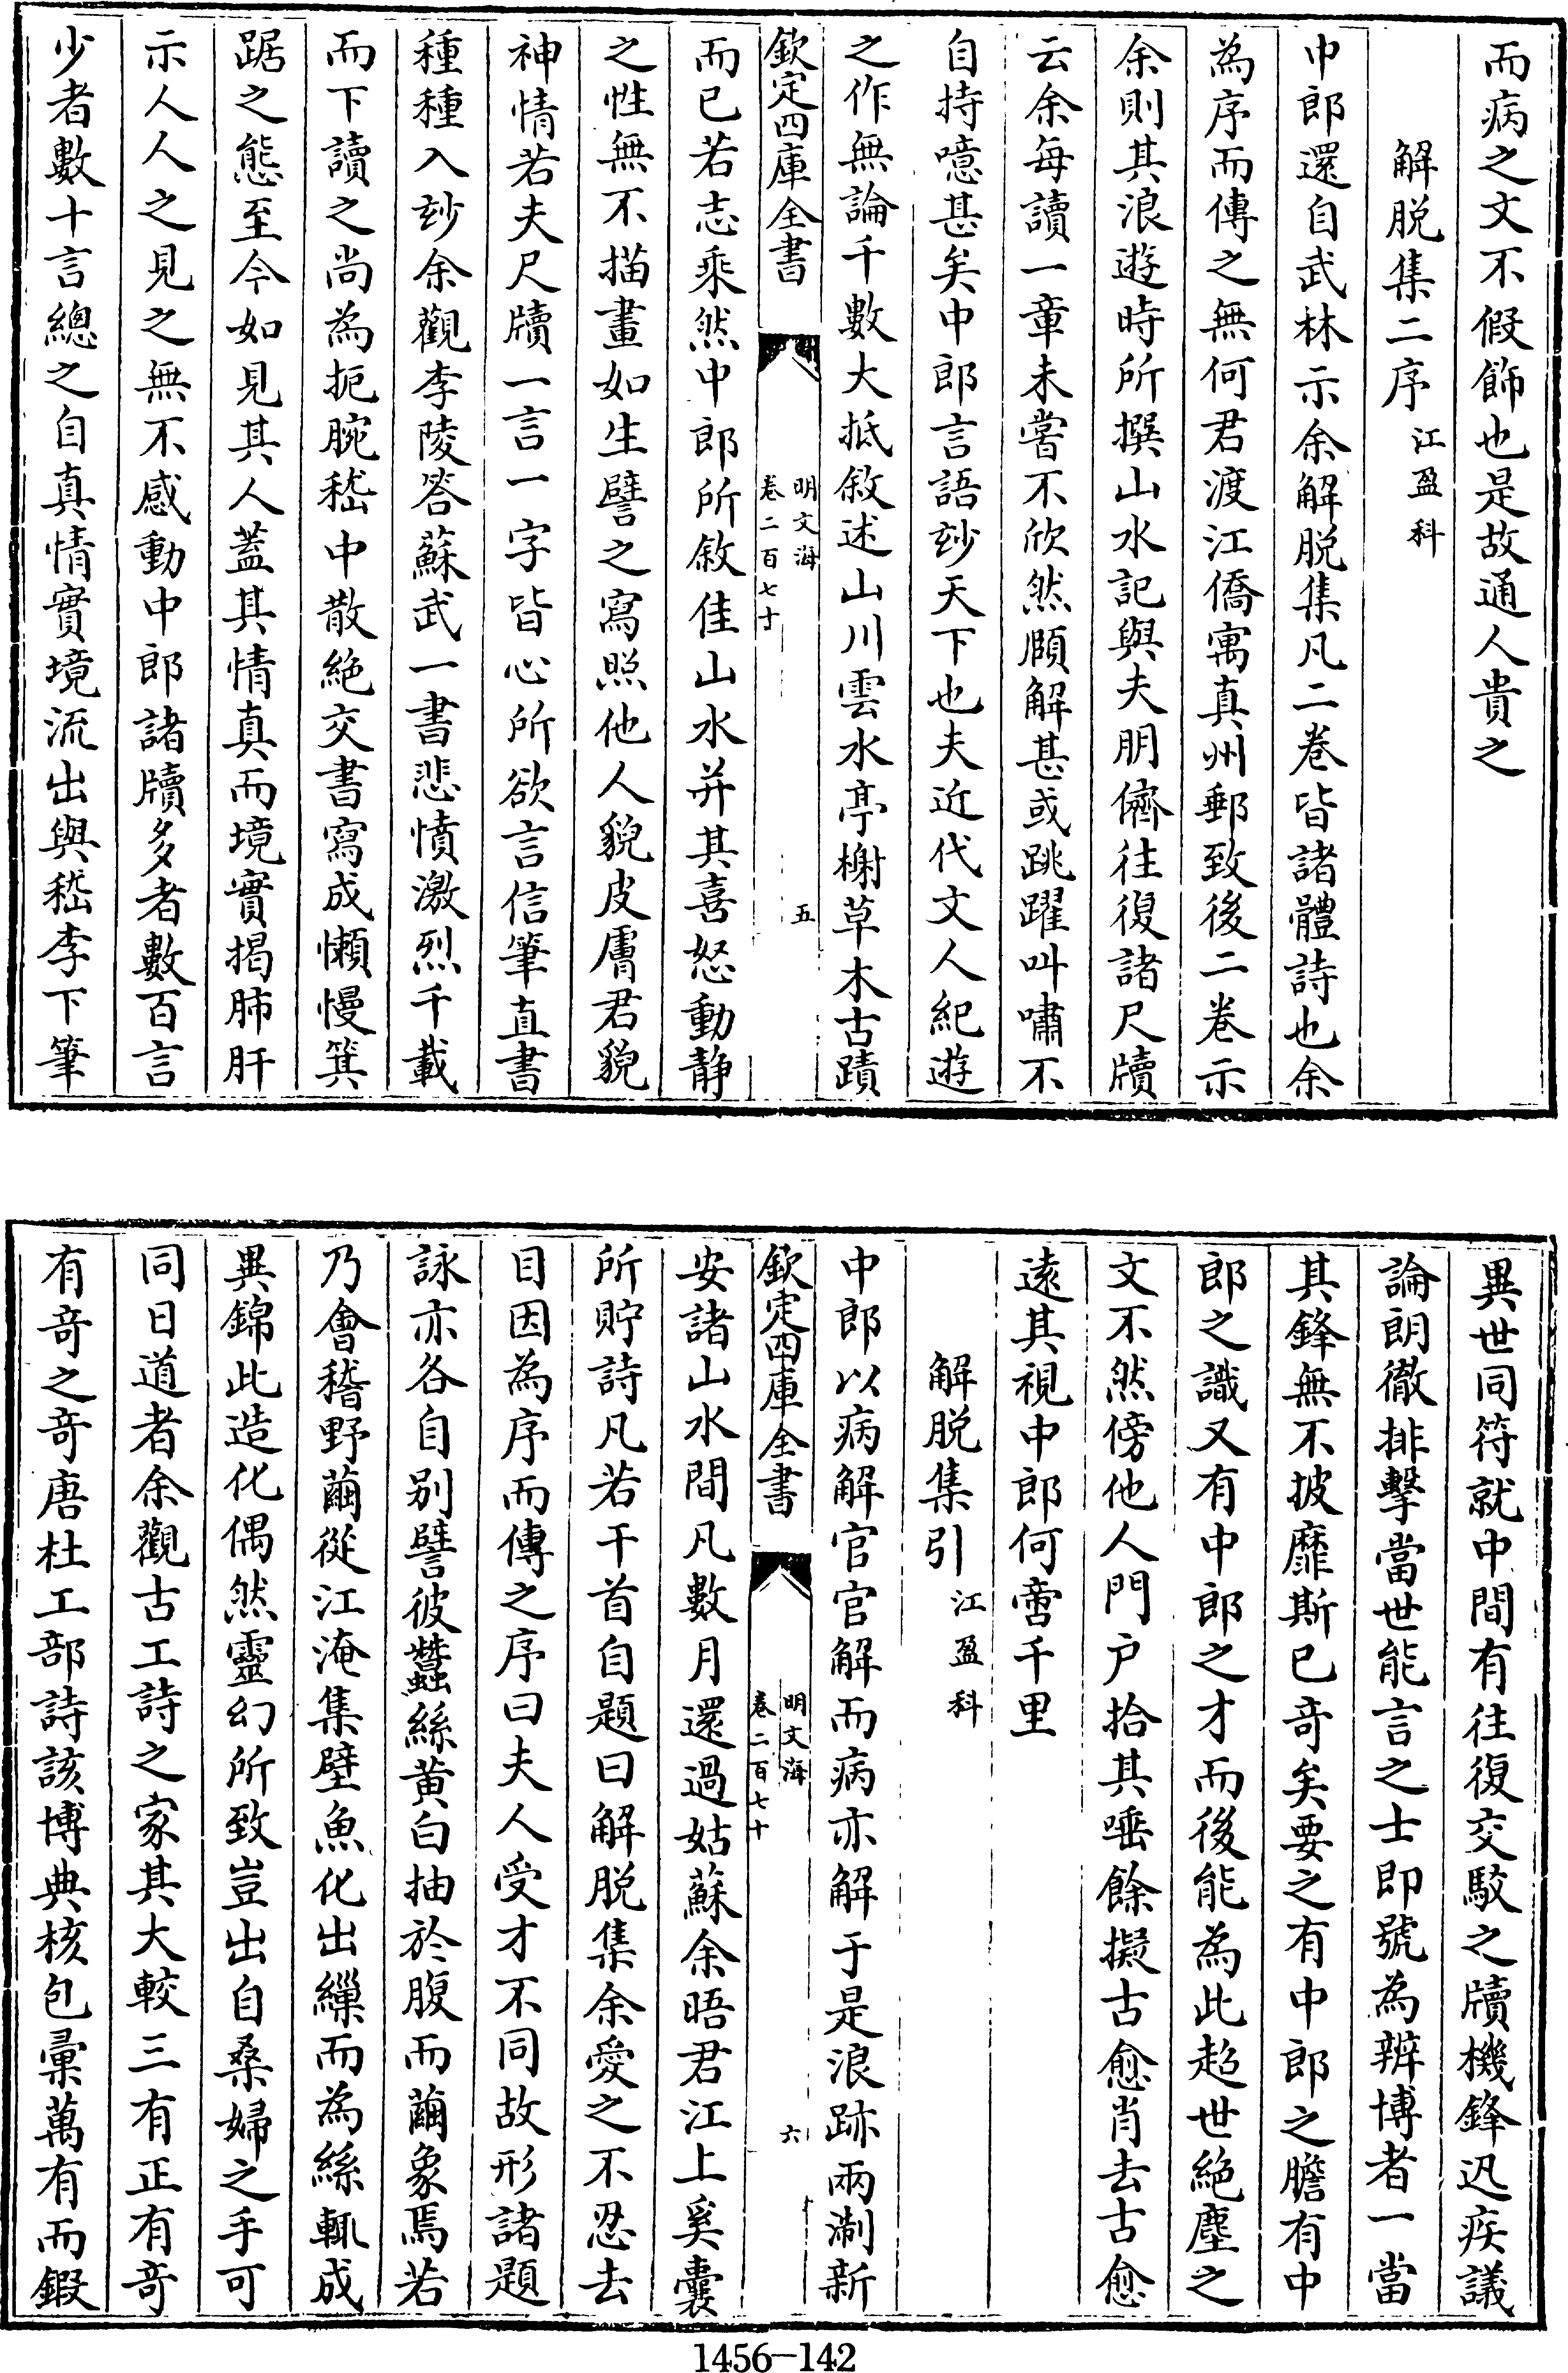 而病之文不假飾也是故通人貴之
解脱集二序 江盈科
中郎還自武林示余解脱集凡二卷皆諸體詩也余
為序而傳之無何君渡江僑寓真州郵致後二卷示
余則其浪遊時所撰山水記與夫朋儕往復諸尺牘
云余每讀一章未嘗不欣然頤解甚或跳躍叫嘯不
自持噫甚矣中郎言語玅天下也夫近代文人紀遊
之作無論千數大抵敘述山川雲水亭榭草木古蹟
欽定四庫全書 明文海 卷二百七十 五
而已若志乘然中郎所敘佳山水并其喜怒動静
之性無不描畫如生譬之寫照他人貌皮膚君貌
神情若夫尺牘一言一字皆心所欲言信筆直書
種種入玅余觀李陵答蘇武一書悲憤激烈千載
而下讀之尚為扼腕嵇中散絶交書寫成懶慢箕
踞之態至今如見其人蓋其情真而境實揭肺肝
示人人之見之無不感動中郎諸牘多者數百言
少者數十言總之自真情實境流出與嵇李下筆
異世同符就中間有往復交駁之牘機鋒迅疾議
論朗徹排擊當世能言之士即號為辨博者一當
其鋒無不披靡斯已竒矣要之有中郎之膽有中
郎之識又有中郎之才而後能為此超世絶塵之
文不然傍他人門户拾其唾餘擬古愈肖去古愈
遠其視中郎何啻千里
解脱集引 江盈科
中郎以病解官官解而病亦解于是浪跡兩浙新
欽定四庫全書 明文海 卷二百七十 六
安諸山水間凡數月還過姑蘇余晤君江上奚囊
所貯詩凡若干首自題曰解脱集余愛之不忍去
目因為序而傳之序曰夫人受才不同故形諸題
詠亦各自别譬彼蠶絲黄白抽於腹而繭象焉若
乃會稽野繭從江淹集壁魚化出繅而為絲輒成
異錦此造化偶然靈幻所致豈出自桑婦之手可
同日道者余觀古工詩之家其大較三有正有竒
有竒之竒唐杜工部詩該博典核包彙萬有而鍜
1456-142